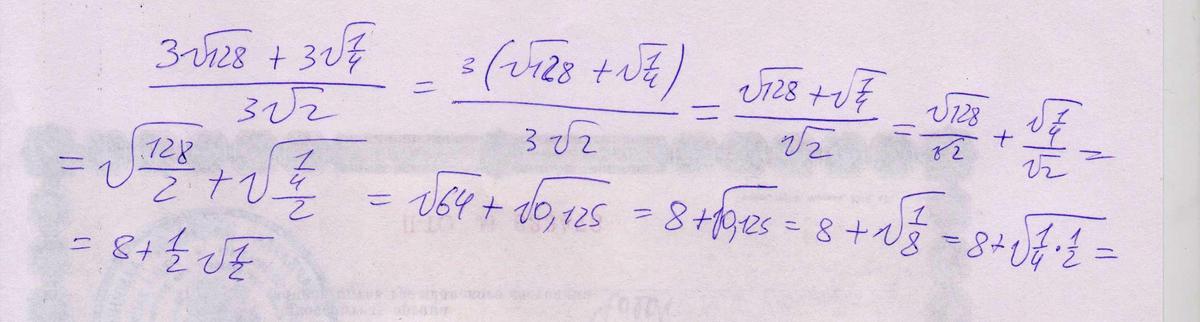 (3√128 + 3√(1/4)) / (3√2) = 3(√128 + √(1/4)) / (3√2) = (√128 + √(1/4)) / √2 = √128/√2 + √(1/4)/√2 =
= √(128/2) + √((1/4)/2) = √64 + √0,125 = 8 + √0,125 = 8 + √(1/8) = 8 + √(1/4 · 1/2) =
= 8 + 1/2 √(1/2)